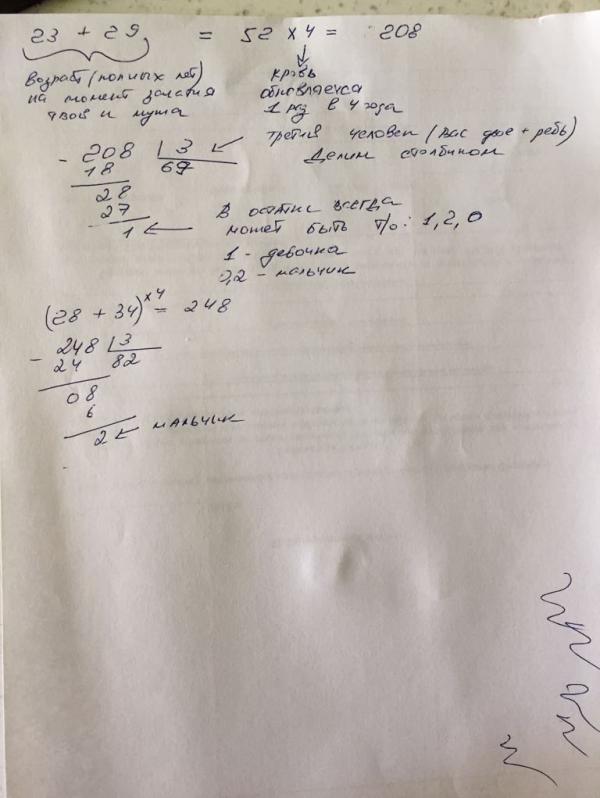 23 + 29 = 52 x 4 = 208
возраст (полных лет)
на момент зачатия
твой и мужа
кровь
обновляется
1 раз в 4 года
третий человек (вас двое + ребь)
Делим столбиком
- 208 3
18 69
28
- 27
1
В остатке всегда
может быть т/о: 1, 2, 0
1 - девочка
0,2 - мальчик
(28 + 34) x4 = 248
- 248 3
24 82
08
6
2 мальчик